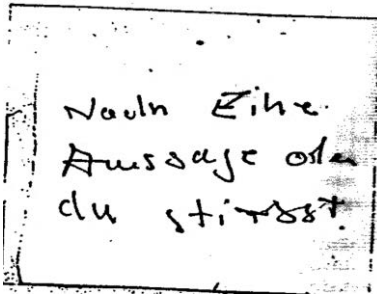 Noch Eine
Aussage oder
du stirbst